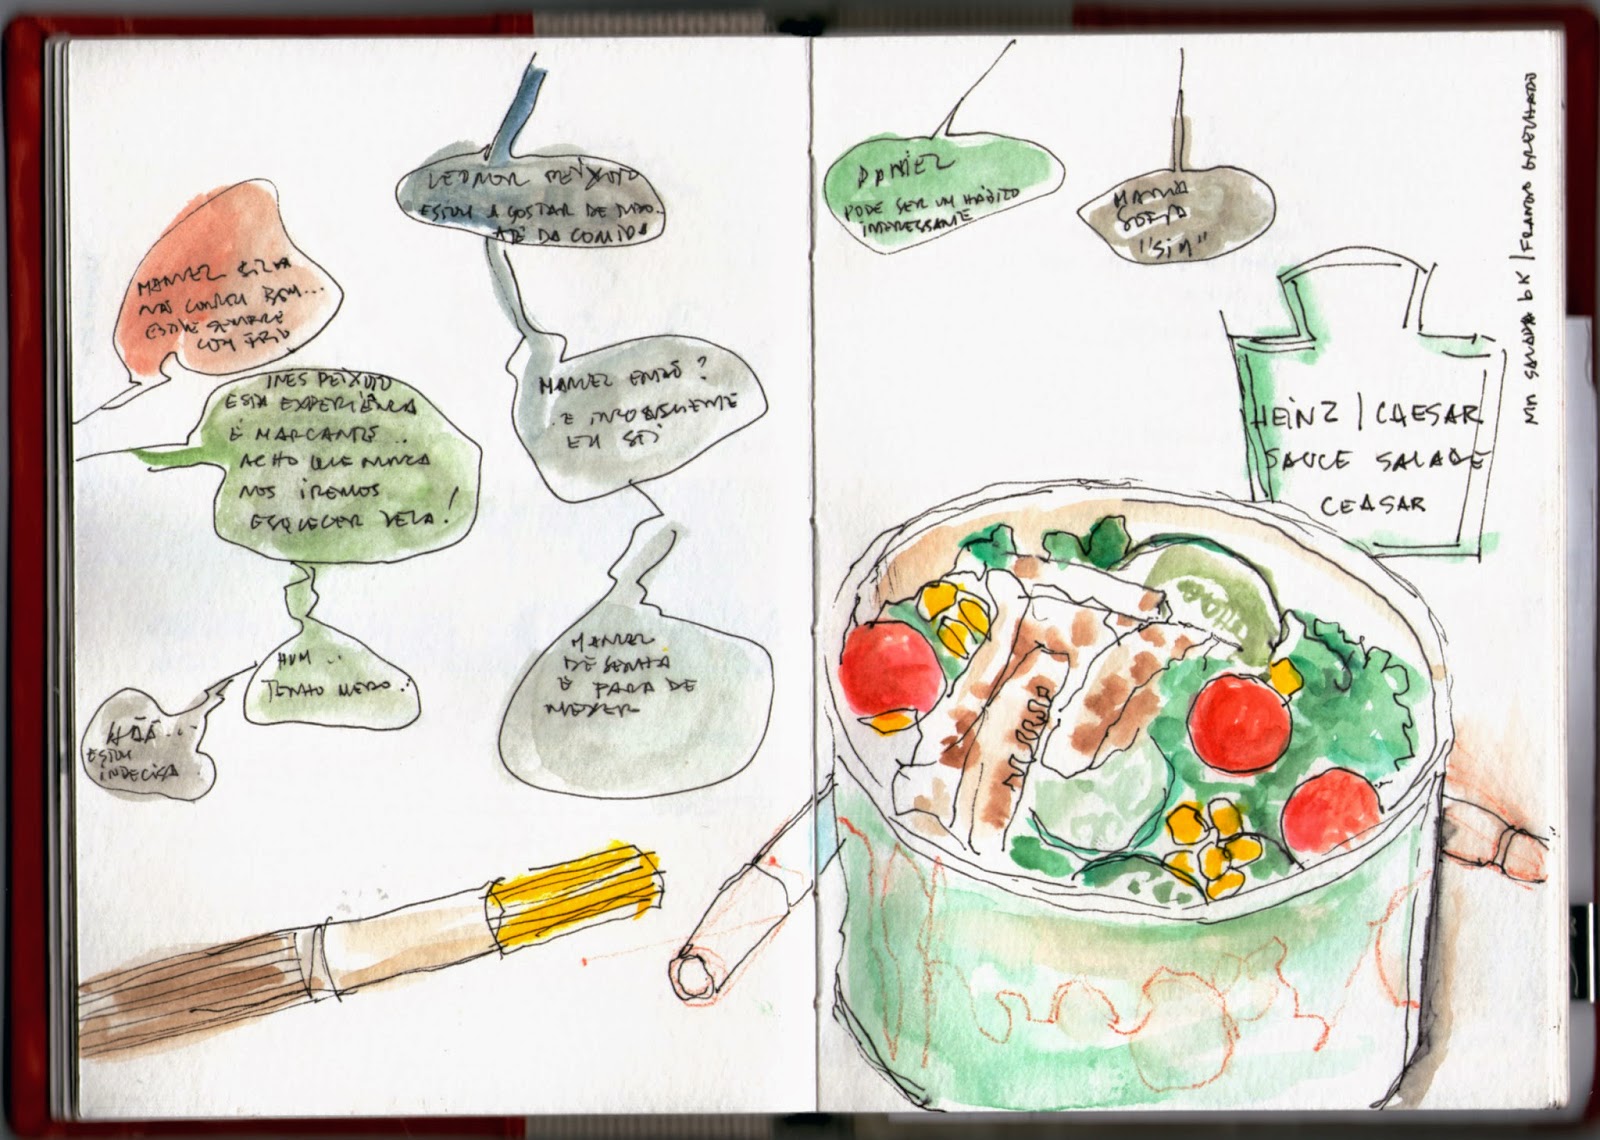 MANUEL SILVA
NÃO COMEU BEM...
ESTIVE SEMPRE
COM FRIO
INES PEIXOTO
ESTA EXPERIÊNCIA
É MARCANTE...
ACHO QUE NUNCA
NOS IREMOS
ESQUECER DELA!
HUM...
TENHO MEDO...
HÃÃ...
ESTOU
INDECISA
LEONOR PEIXOTO
ESTOU A GOSTAR DE TUDO...
ATÉ DA COMIDA
MANUEL ENTÃO?
EM SI
MANUEL
DESENHA
E PARA DE
MEXER
DANIEL
PODE SER UM HÁBITO
INTERESSANTE
MARIA
"SIM"
HEINZ | CAESAR
SAUCE SALADE
CEASAR
SALADA BK | FRANGO GRELHADO